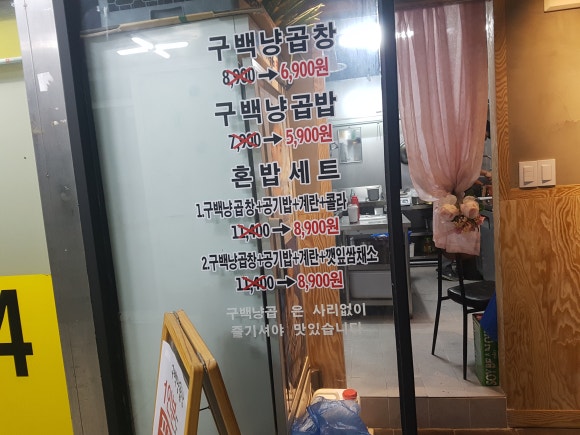 구백냥곱창
8,900→6,900원
구백냥곱밥
7,900→5,900원
혼밥세트
1.구백냥곱창+공기밥+계란+콜라
11,400→8,900원
2.구백냥곱창+공기밥+계란+깻잎쌈채소
11,400→8,900원
구백냥곱 은 사리없이
즐기셔야 맛있습니다
4